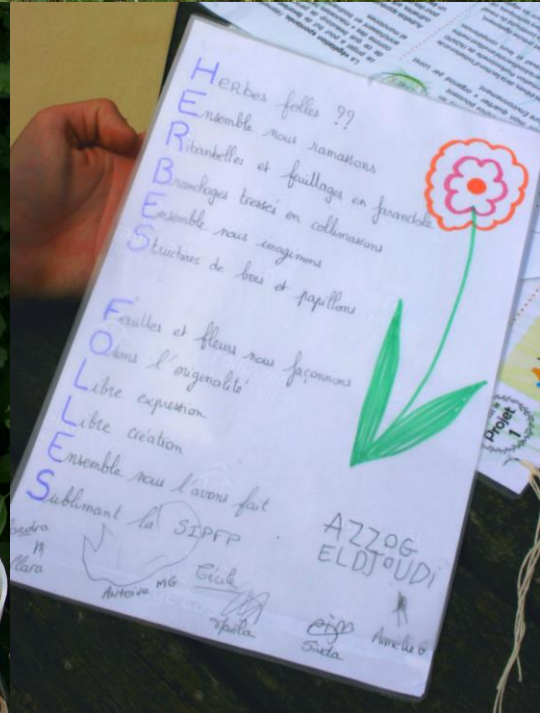 Herbes folles ??
Ensemble nous ramassons
Ribambelles et feuillages en farandole
Branchages tressés en colimassons
Ensemble nous imaginons
Structures de bois et papillons
Feuilles et fleurs nous façonnons
Osons l'originalité
Libre expression
Libre création
Ensemble nous l'avons fait
Sublimant la SIPFP
AZZOG
ELDJOUDI
Antoine MG
Cécile
Amélie G
Projet
1